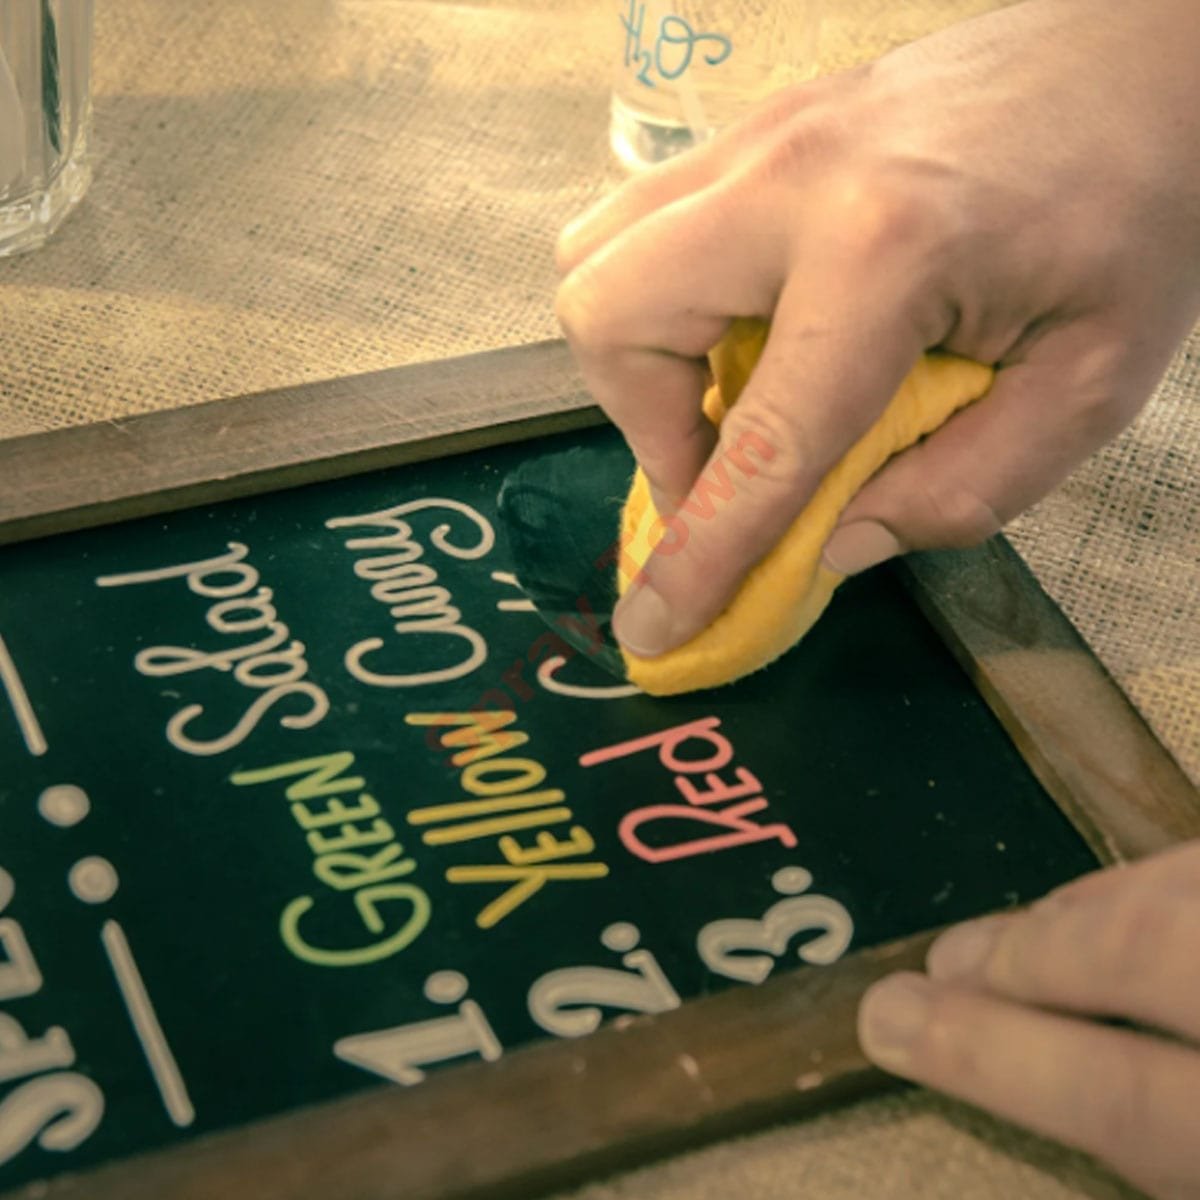 H₂O
SPE
1. GREEN Salad
2. YEllOW Curry
3. REd C
Spray Town